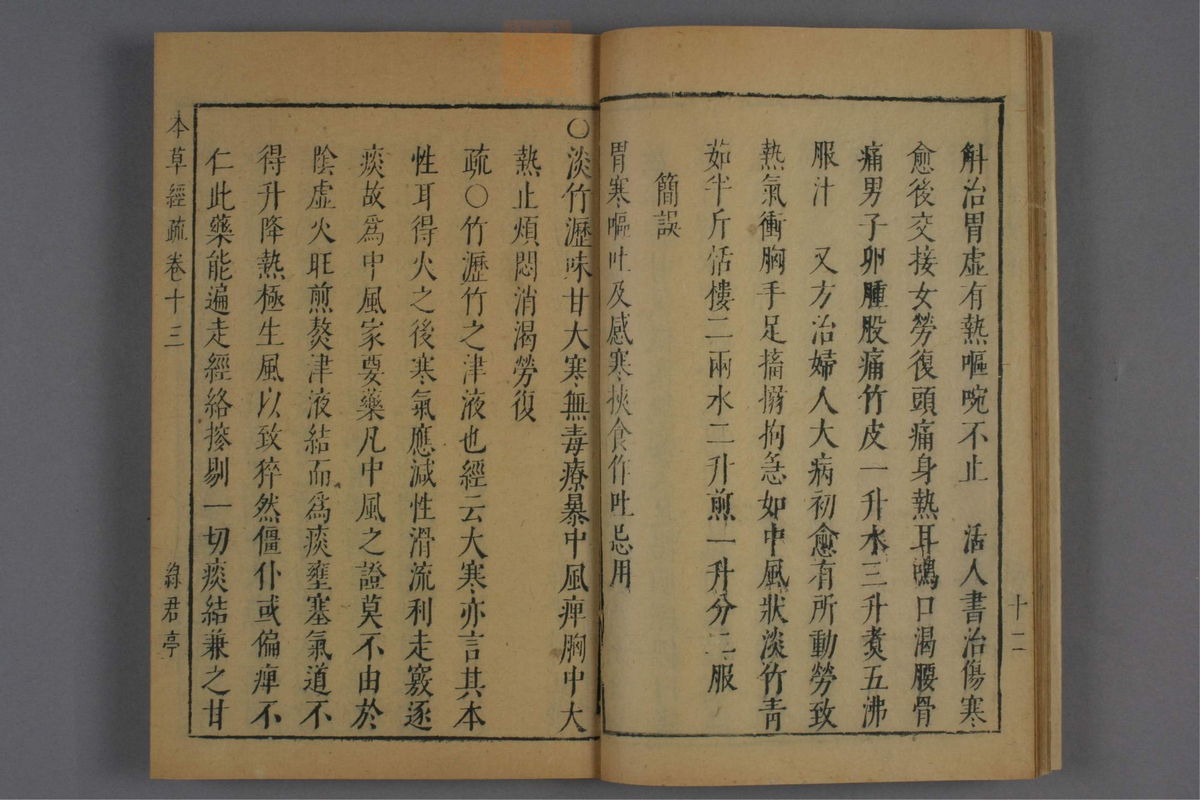 斛治胃虛有熱嘔啘不止　活人書治傷寒
愈後交接女勞復頭痛身熱耳鳴口渴腰骨
痛男子卵腫股痛竹皮一升水三升煑五沸
服汁　又方治婦人大病初愈有所動勞致
熱氣衝胸手足搐搦拘急如中風狀淡竹靑
茹半斤恬樓二兩水二升煎一升分二服
簡誤
胃寒嘔吐及感寒挾食作吐忌用
十二
○淡竹瀝味甘大寒無毒療暴中風痺胸中大
熱止煩悶消渴勞復
疏○竹瀝竹之津液也經云大寒亦言其本
性耳得火之後寒氣應減性滑流利走竅逐
痰故爲中風家要藥凡中風之證莫不由於
陰虛火旺煎熬津液結而爲痰壅塞氣道不
得升降熱極生風以致猝然僵仆或偏痺不
仁此藥能遍走經絡摉剔一切痰結兼之甘
本草經疏卷十三
綠君亭